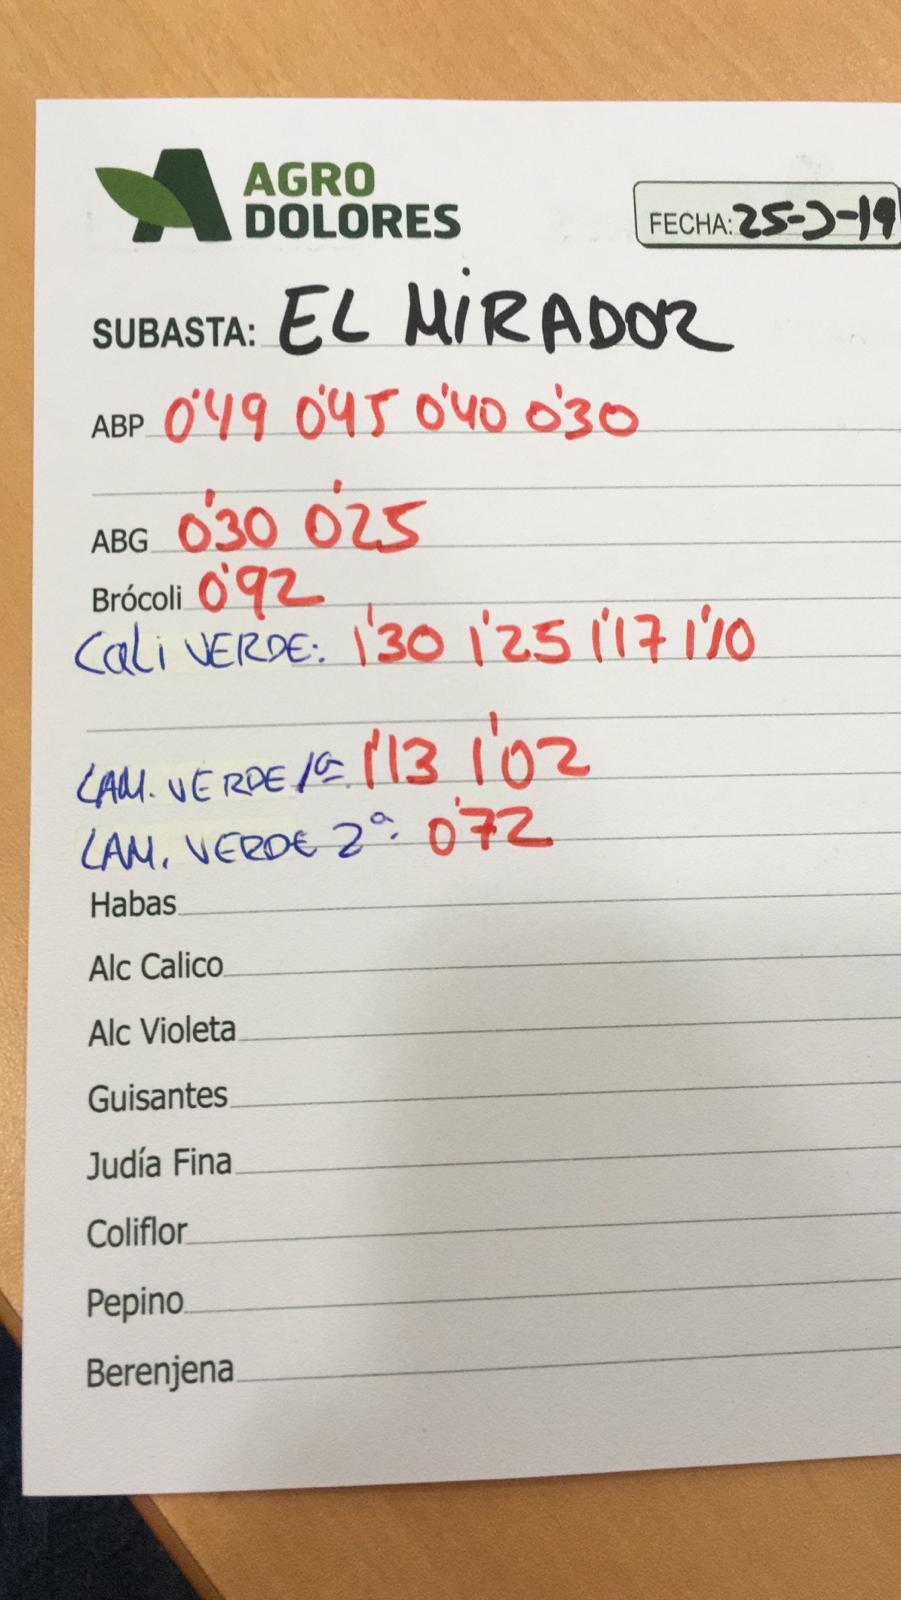 AGRO
DOLORES
FECHA: 25-3-19
SUBASTA: EL MIRADOR
ABP 0'49 0'45 0'40 0'30
ABG 0'30 0'25
Brócoli 0'92
Cali VERDE: 1'30 1'25 1'17 1'10
LAM. VERDE 1ª 1'13 1'02
LAM. VERDE 2ª 0'72
Habas
Alc Calico
Alc Violeta
Guisantes
Judía Fina
Coliflor
Pepino
Berenjena